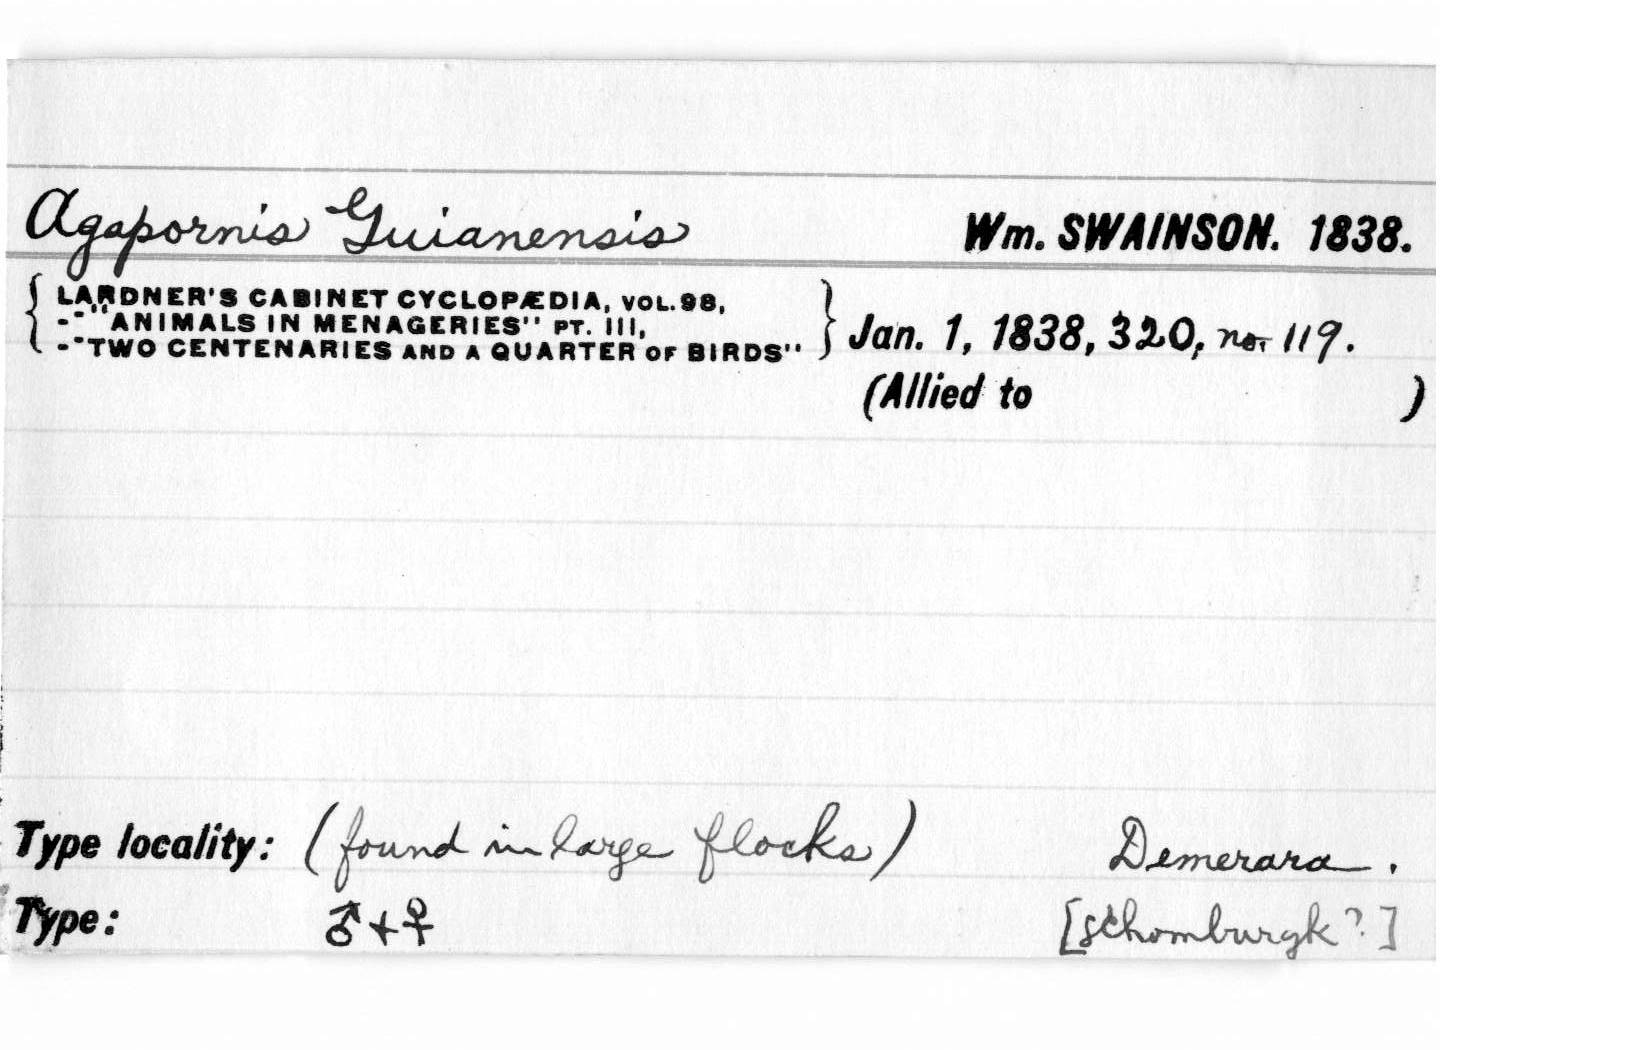 Agapornis Guianensis Wm. SWAINSON. 1838.
{ LARDNER'S CABINET CYCLOPÆDIA, VOL. 98,
-- "ANIMALS IN MENAGERIES" PT. III, } Jan. 1, 1838, 320, no. 119.
-- "TWO CENTENARIES AND A QUARTER OF BIRDS"
(Allied to )
Type locality: (found in large flocks) Demerara.
Type: ♂+♀ [Schomburgk?]